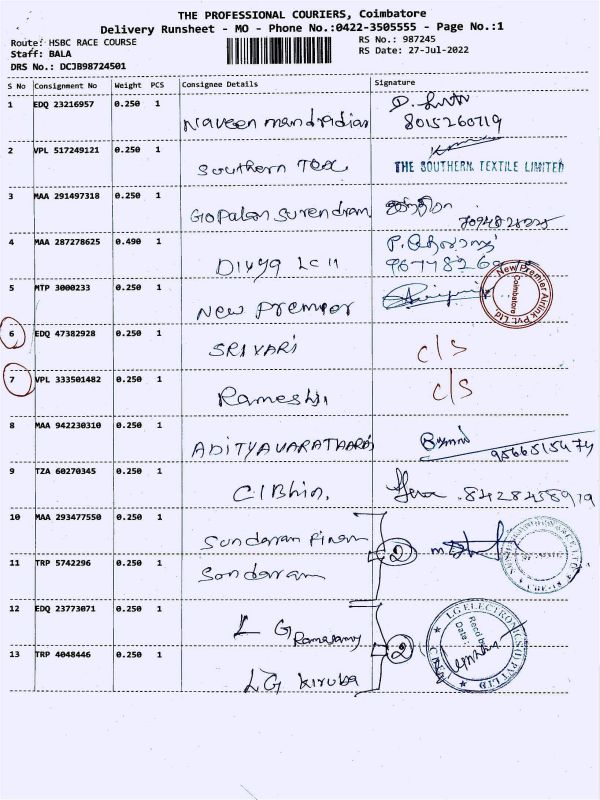 THE PROFESSIONAL COURIERS, Coimbatore
Delivery Runsheet - MO - Phone No.:0422-3505555 - Page No.:1
Route: HSBC RACE COURSE
Staff: BALA
DRS No.: DCJB98724501
RS No.: 987245
RS Date: 27-Jul-2022
S No Consignment No Weight PCS Consignee Details Signature
1 EDQ 23216957 0.250 1
8015260719
2 VPL 517249121 0.250 1 Southern Tex
THE SOUTHERN TEXTILE LIMITED
3 MAA 291497318 0.250 1 Gopalan Surendram
4 MAA 287278625 0.490 1 Divya
5 MTP 3000233 0.250 1 New Premier
New Premier Airlink Pvt. Ltd
Coimbatore
6 EDQ 47382928 0.250 1 SRIVARI C/S
7 VPL 333501482 0.250 1 Ramesh C/S
8 MAA 942230310 0.250 1
9566515474
9 TZA 60270345 0.250 1
8428458919
10 MAA 293477550 0.250 1 Sundaram
11 TRP 5742296 0.250 1 Sundaram
2
12 EDQ 23773071 0.250 1 LG Ramasamy
13 TRP 4048446 0.250 1 LG Kiruba
2
LG ELECTRONICS
Recd by
Date: